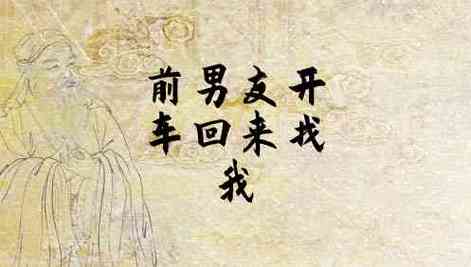 前男友开
车回来找
我